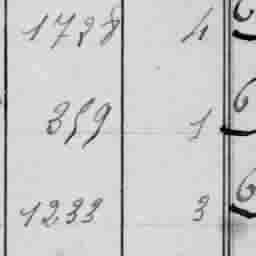 1738 4 6
359 1 6
1233 3 6